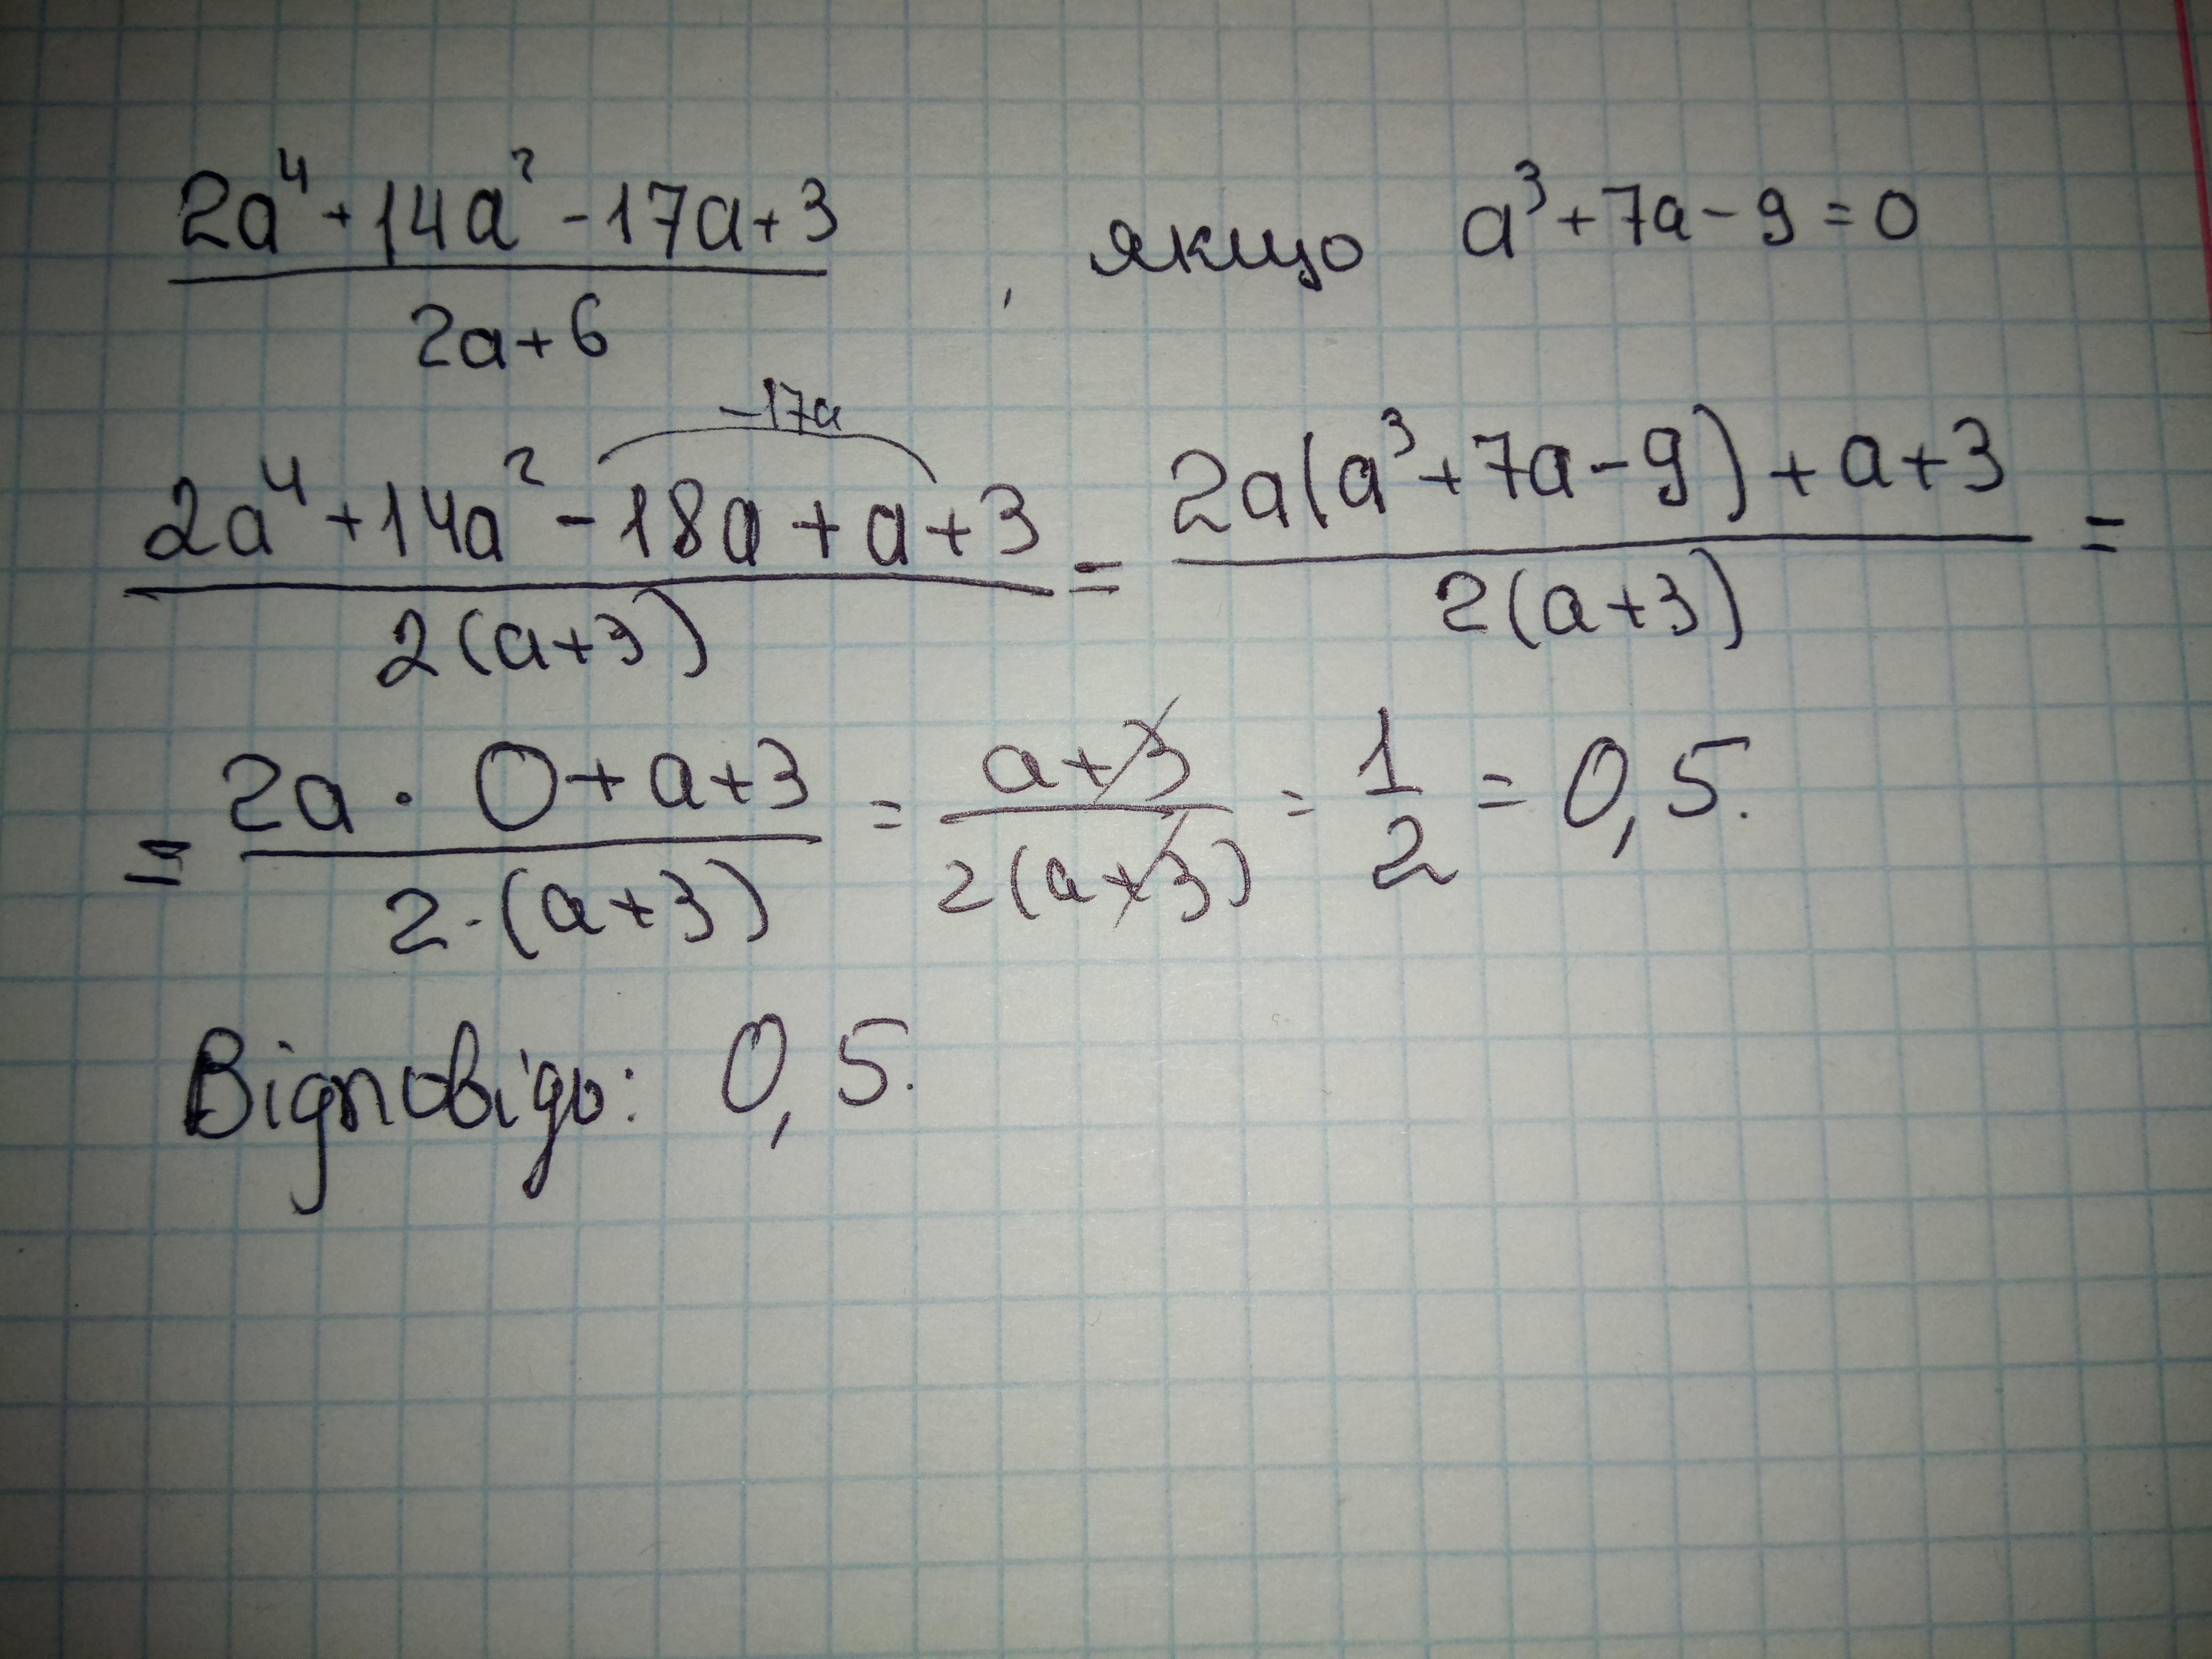 (2a⁴+14a²-17a+3)/(2a+6), якщо a³+7a-9=0
-17a
(2a⁴+14a²-18a+a+3)/(2(a+3)) = (2a(a³+7a-9)+a+3)/(2(a+3)) =
= (2a·0+a+3)/(2·(a+3)) = (a+3)/(2(a+3)) = 1/2 = 0,5.
Відповідь: 0,5.